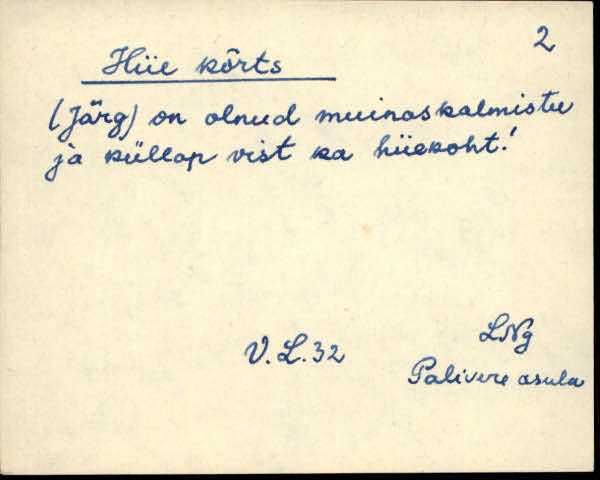 2
Hiie kõrts
(Järg) on olnud muinaskalmistu
ja küllap vist ka hiiekoht!
V.L.32
LNg
Palivere asula